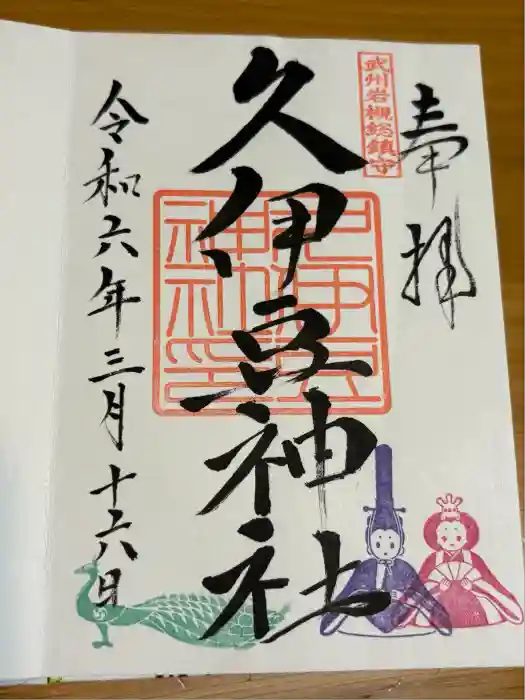 奉拝
武州岩槻総鎮守
久伊豆神社
久伊豆神社印
令和六年三月十六日